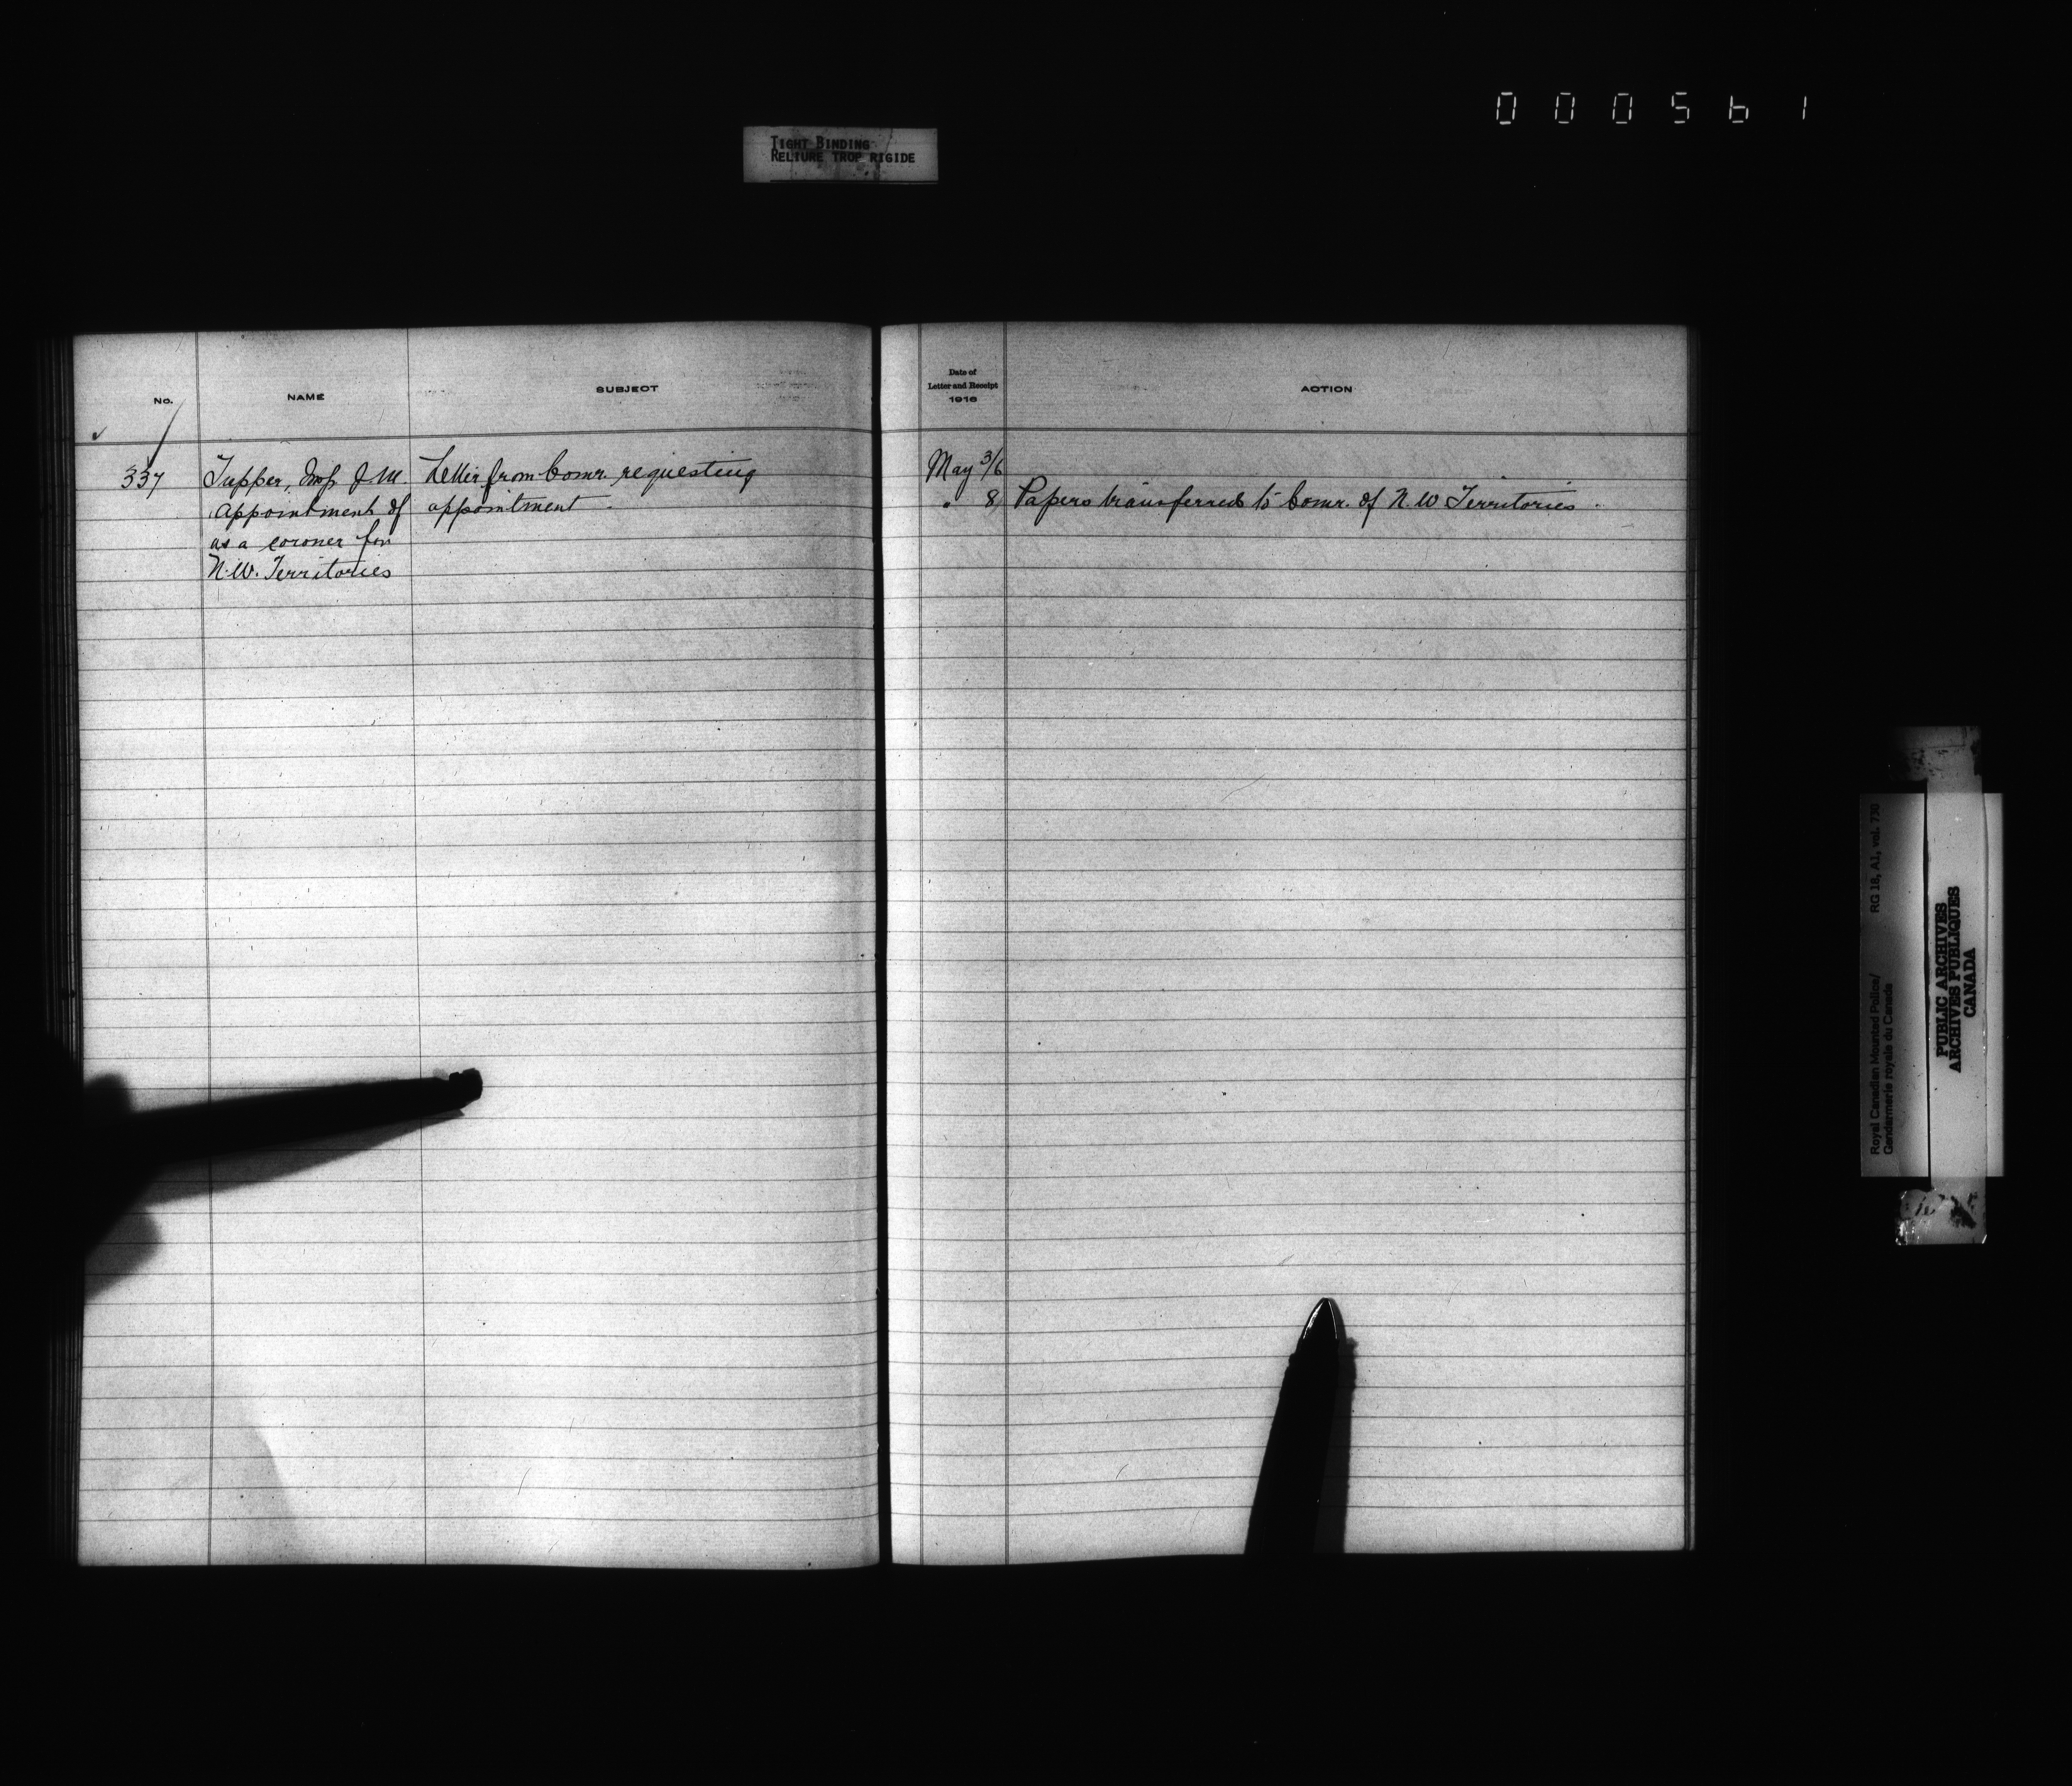 000561
TIGHT BINDING
RELIURE TROP RIGIDE
No.
NAME
SUBJECT
Date of
Letter and Receipt
1916
ACTION
337 Tupper, Insp. J M. Letter from Comr. requesting May 3/6
appointment of appointment. " 8 Papers transferred to Comr. of N. W Territories.
as a coroner for
N. W. Territories
RG 18, A1, vol. 730
Royal Canadian Mounted Police/
Gendarmerie royale du Canada
PUBLIC ARCHIVES
ARCHIVES PUBLIQUES
CANADA